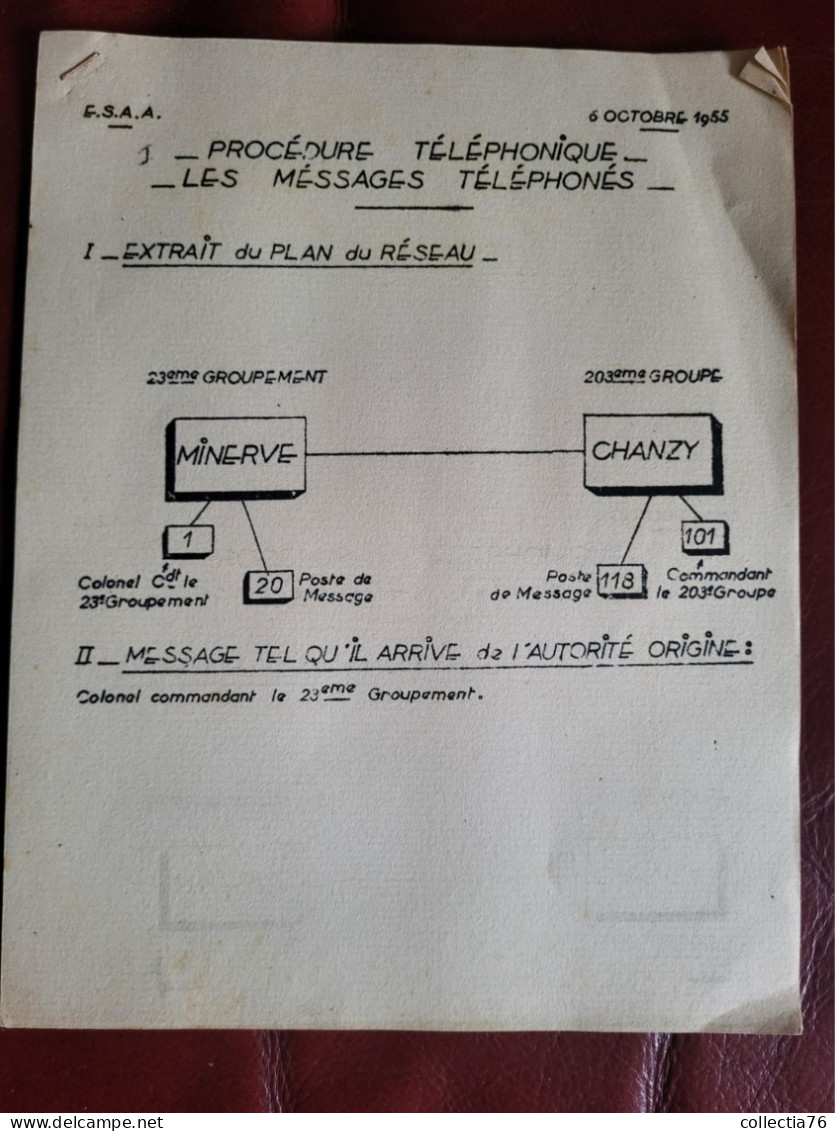 E.S.A.A.
6 OCTOBRE 1955
_ PROCÉDURE TÉLÉPHONIQUE _
_ LES MÉSSAGES TÉLÉPHONÉS _
I _ EXTRAIT du PLAN du RÉSEAU _
23eme GROUPEMENT
203eme GROUPE
MINERVE
CHANZY
1
101
20
118
Colonel Cdt le
23e Groupement
Poste de
Message
Poste
de Message
Commandant
le 203e Groupe
II _ MESSAGE TEL QU'IL ARRIVE de l'AUTORITÉ ORIGINE :
Colonel commandant le 23eme Groupement.
collectia76